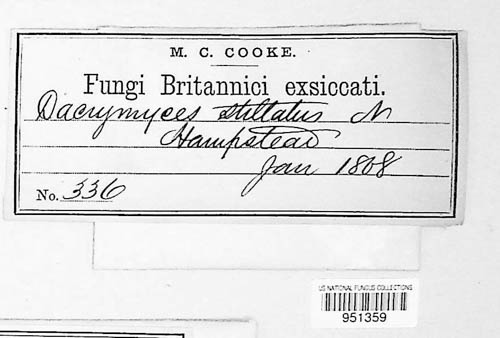 M. C. COOKE.
Fungi Britannici exsiccati.
Dacrymyces stillatus N
Hampstead
Jan 1868
No. 336
US NATIONAL FUNGUS COLLECTIONS
951359